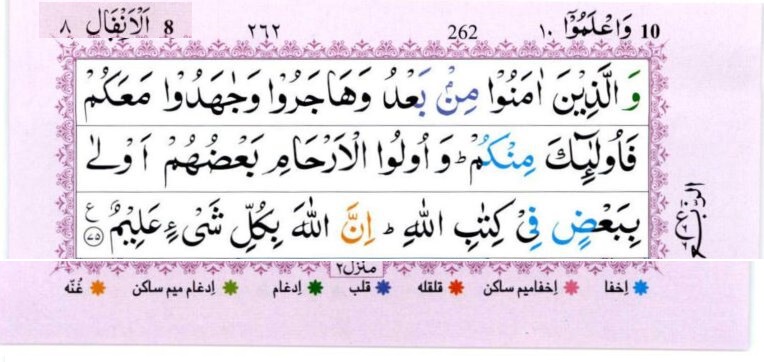 10 وَاعْلَمُوْۤا ۱۰ 262 ۲۶۲ 8 اَلْاَنْفَال ۸
وَ الَّذِیْنَ اٰمَنُوْا مِنْۢ بَعْدُ وَهَاجَرُوْا وَجٰهَدُوْا مَعَكُمْ
فَاُولٰٓئِكَ مِنْكُمْ ؕ وَ اُولُوا الْاَرْحَامِ بَعْضُهُمْ اَوْلٰی
بِبَعْضٍ فِیْ كِتٰبِ اللّٰهِ ؕ اِنَّ اللّٰهَ بِكُلِّ شَیْءٍ عَلِیْمٌ ۠ ع ﴿۷۵﴾
منزل ۲
اِخفا اِخفامیم ساکن قلقله قلب اِدغام اِدغام میم ساکن غُنّه